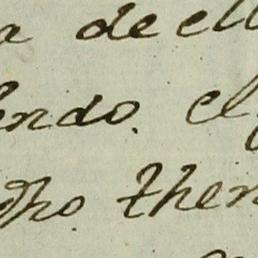 a de ell
endo. el
dho then